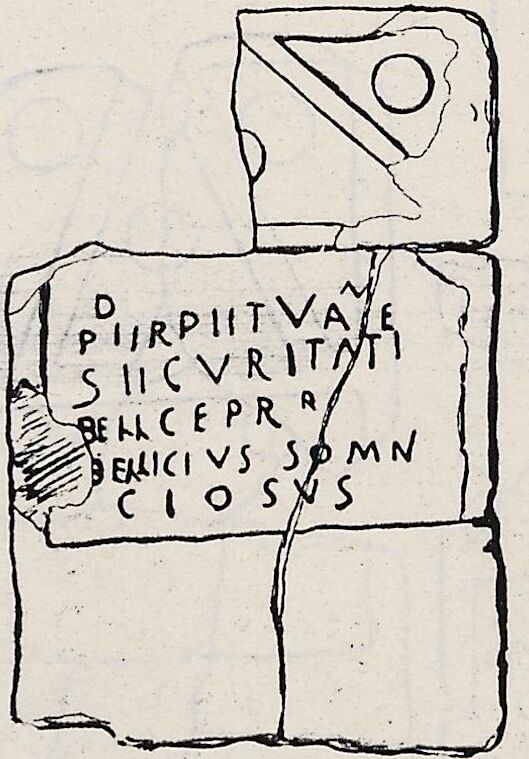 D M
PIIRPIITVAE
SIICVRITATI
BELLCEPR R
BELLICIVS SOMN
CIOSVS